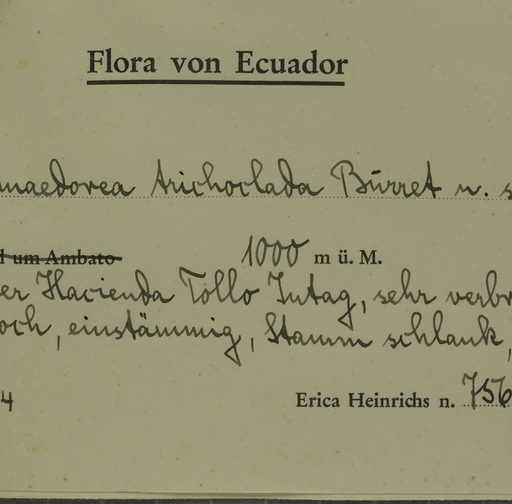 Flora von Ecuador
maedorea trichoclada Burret n. s
d um Ambato 1000 m ü. M.
er Hacienda Tollo Intag, sehr verbr
och, einstämmig, Stamm schlank,
4 Erica Heinrichs n. 756